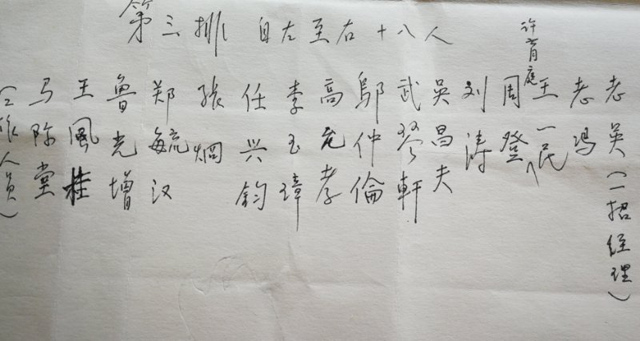 第三排 自左至右十八人
(工作人员)
马际堂
王風桂
鲁光增
郑毓汉
张烱
任兴鈞
李玉璋
高允孝
鄔仲倫
武琴軒
吳昌夫
刘涛
周登
许育庭
王一民
老冯
老吴(一招经理)